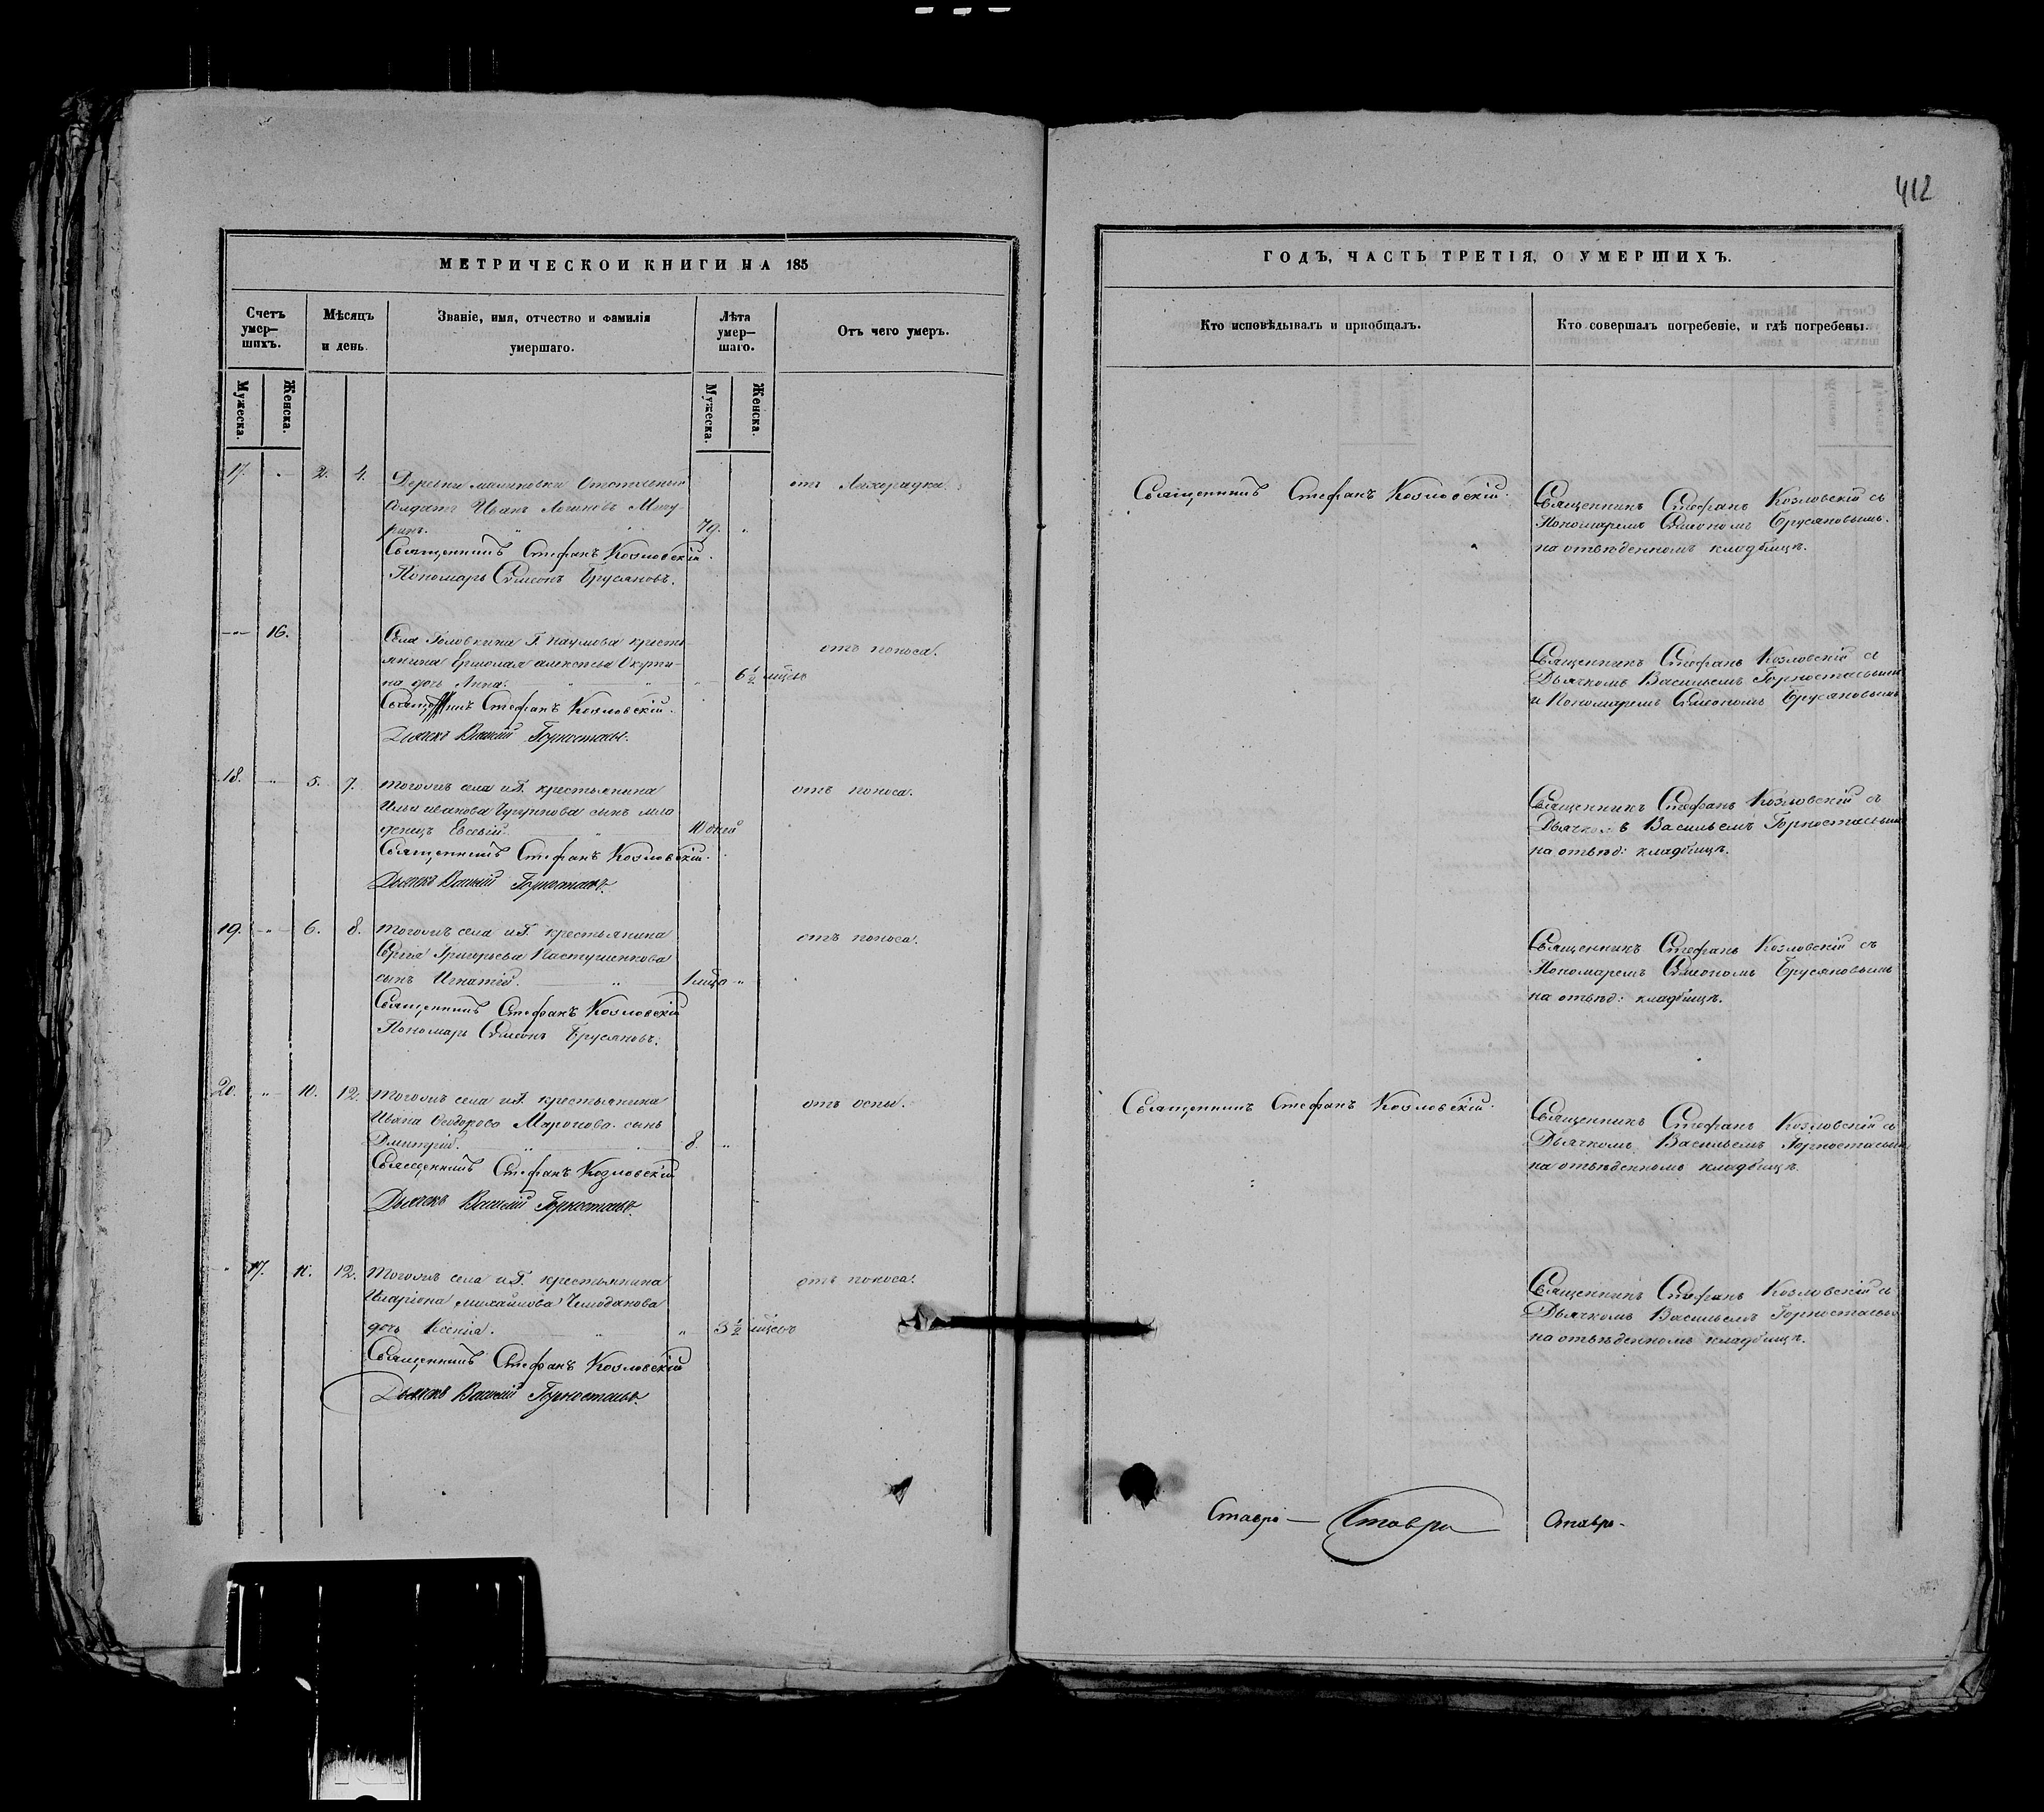 412
МЕТРИЧЕСКОЙ КНИГИ НА 185
Счетъ умер-шихъ.
Мѣсяцъ и день.
Званіе, имя, отчество и фамилія умершаго.
Лѣта умер-шаго.
Отъ чего умеръ.
Мужеска.
Женска.
Мужеска.
Женска.
17. 2. 4. Деревни отставный отъ Лихорадки.
Солдатъ Иванъ Логиновъ Мичу-
ринъ. 79.
Священникъ Стефанъ Козловскій.
Пономарь Симеонъ Брусяновъ.
16. Села Головкина Г. Наумова кресть-
янина Ермолая алексѣева Окути- отъ поноса.
на дочь Анна. 6½ мцовъ
Священникъ Стефанъ Козловскій.
Дьячекъ Василій Горностаевъ.
18. 5. 7. Тогожъ села и Г. крестьянина отъ поноса.
Ильи иванова сынъ мла
денецъ Евсевій. 10 дней
Священникъ Стефанъ Козловскій.
Дьячекъ Василій Горностаевъ.
19. 6. 8. Тогожъ села и Г. крестьянина отъ поноса.
Сергія Григорьева Пастушенкова
сынъ Игнатій. 1 мцъ
Священникъ Стефанъ Козловскій
Пономарь Симеонъ Брусяновъ.
20. 10. 12. Тогожъ села и Г. крестьянина отъ оспы.
Ивана Ѳеодорова Миронова сынъ
Димитрій. 8.
Священникъ Стефанъ Козловскій
Дьячекъ Василій Горностаевъ.
17. 12. Тогожъ села и Г. крестьянина отъ поноса.
Иларіона михайлова Чемоданова
дочь Ксенія. 3½ мцовъ
Священникъ Стефанъ Козловскій
Дьячекъ Василій Горностаевъ.
ГОДЪ, ЧАСТЬ ТРЕТІЯ, О УМЕРШИХЪ.
Кто исповѣдывалъ и пріобщалъ.
Кто совершалъ погребеніе, и гдѣ погребены.
Священникъ Стефанъ Козловскій.
Священникъ Стефанъ Козловскій съ
Пономаремъ Симеономъ Брусяновымъ.
на отвѣденномъ кладбищѣ.
Священникъ Стефанъ Козловскій съ
Дьячкомъ Васильемъ Горностаевымъ
и Пономаремъ Симеономъ Брусяновымъ
Священникъ Стефанъ Козловскій съ
Дьячкомъ Васильемъ Горностаевымъ
на отвѣд: кладбищѣ.
Священникъ Стефанъ Козловскій съ
Пономаремъ Симеономъ Брусяновымъ
на отвѣд: кладбищѣ.
Священникъ Стефанъ Козловскій.
Священникъ Стефанъ Козловскій съ
Дьячкомъ Васильемъ Горностаевымъ
на отвѣденномъ кладбищѣ.
Священникъ Стефанъ Козловскій съ
Дьячкомъ Васильемъ Горностаевымъ
на отвѣденномъ кладбищѣ.
Ставро— Ставро— Ставро-